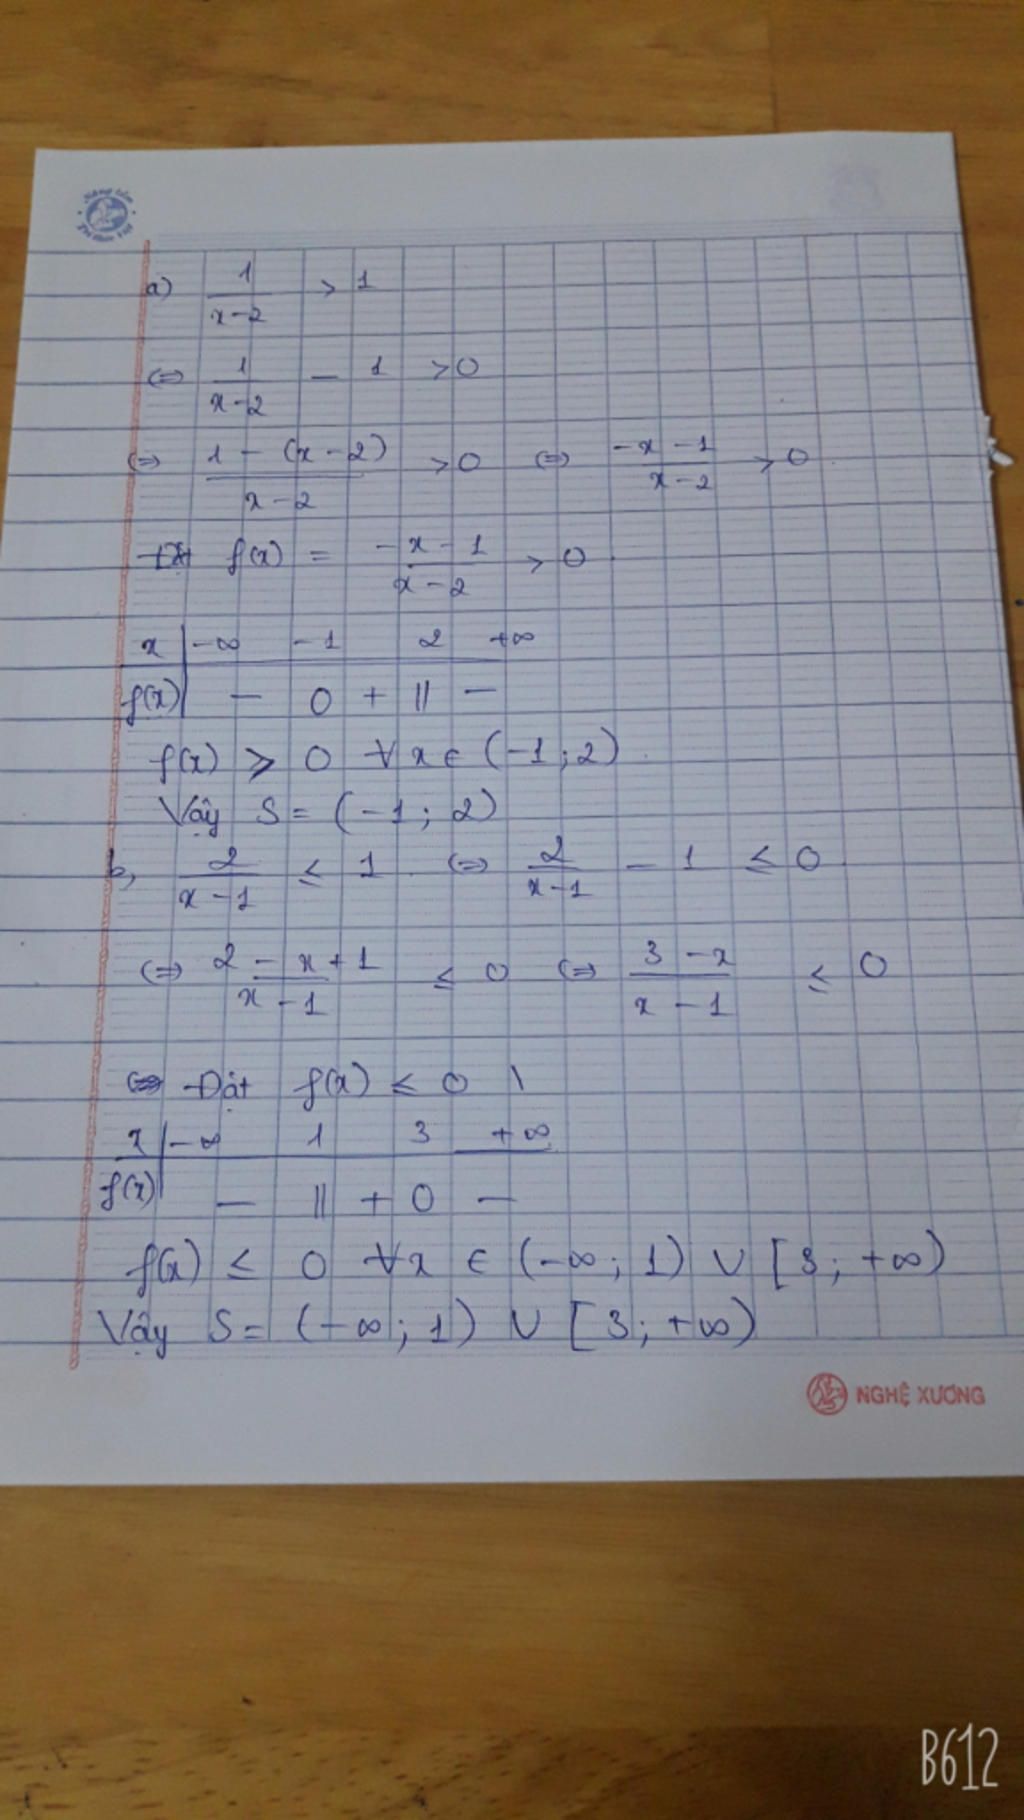 a) 1/(x-2) > 1
⇔ 1/(x-2) - 1 > 0
⇔ (1 - (x-2))/(x-2) > 0 ⇔ (-x-1)/(x-2) > 0
Đặt f(x) = (-x-1)/(x-2) > 0
x | -∞ -1 2 +∞
f(x) | - 0 + || -
f(x) ⩾ 0 ∀x ∈ (-1; 2)
Vậy S = (-1; 2)
b, 2/(x-1) ≤ 1 ⇔ 2/(x-1) - 1 ≤ 0
⇔ (2 - x + 1)/(x-1) ≤ 0 ⇔ (3-x)/(x-1) ≤ 0
⇔ Đặt f(x) ≤ 0 \
x | -∞ 1 3 +∞
f(x) | - || + 0 -
f(x) ≤ 0 ∀x ∈ (-∞; 1) ∪ [3; +∞)
Vậy S = (-∞; 1) ∪ [3; +∞)
NGHỆ XƯƠNG
B612